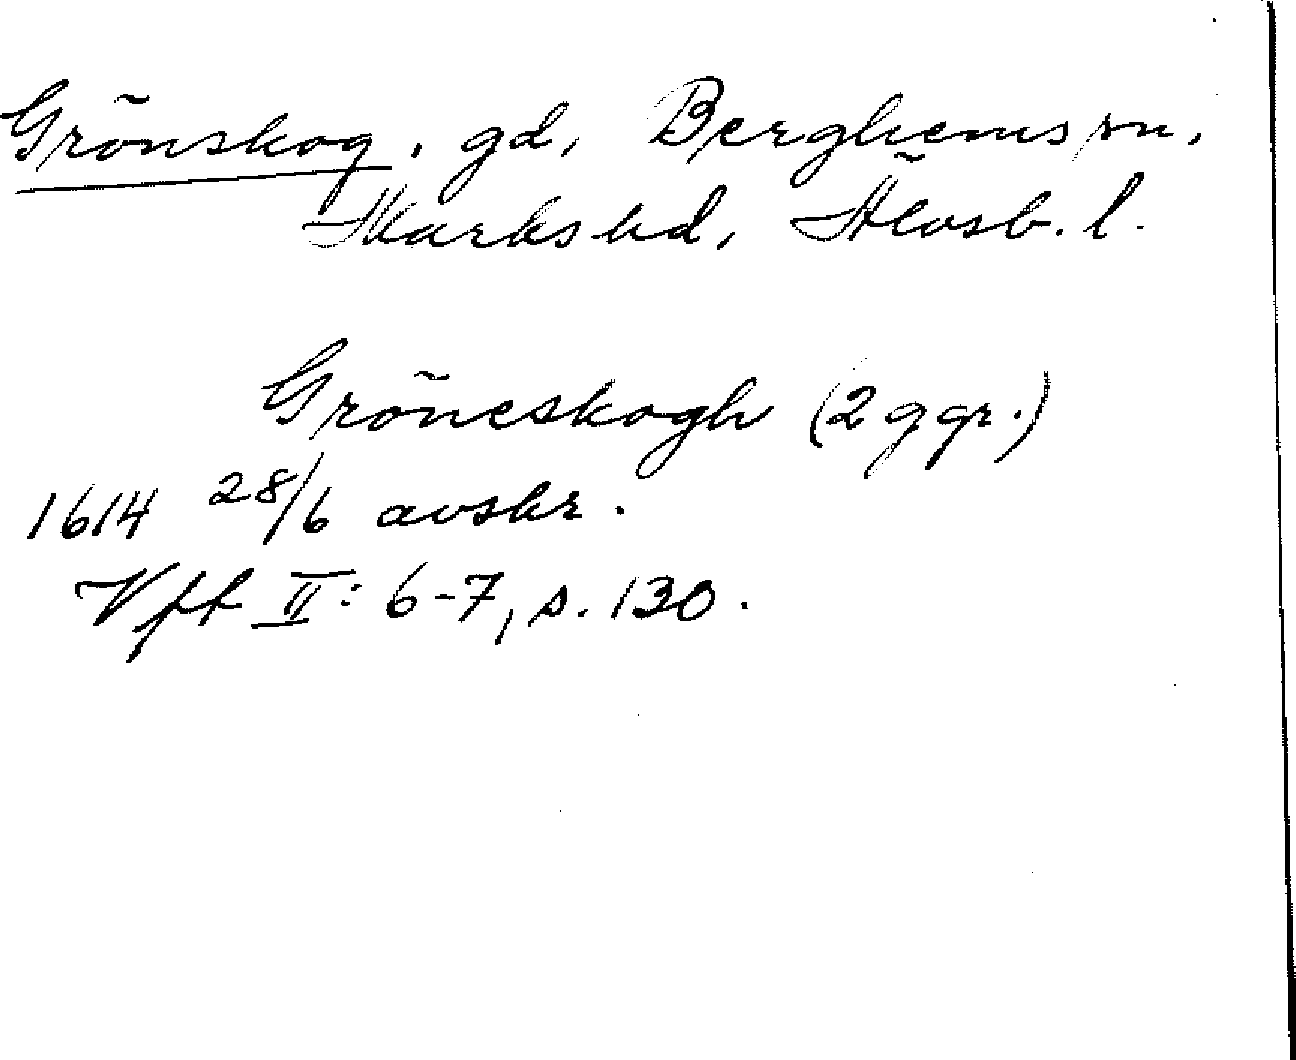 Grönskog, gd, Berghems sn,
Marks hd, Älvsb. l.
Gröneskogh (2 ggr.)
1614 28/6 avskr.
Vff II: 6-7, s. 130.